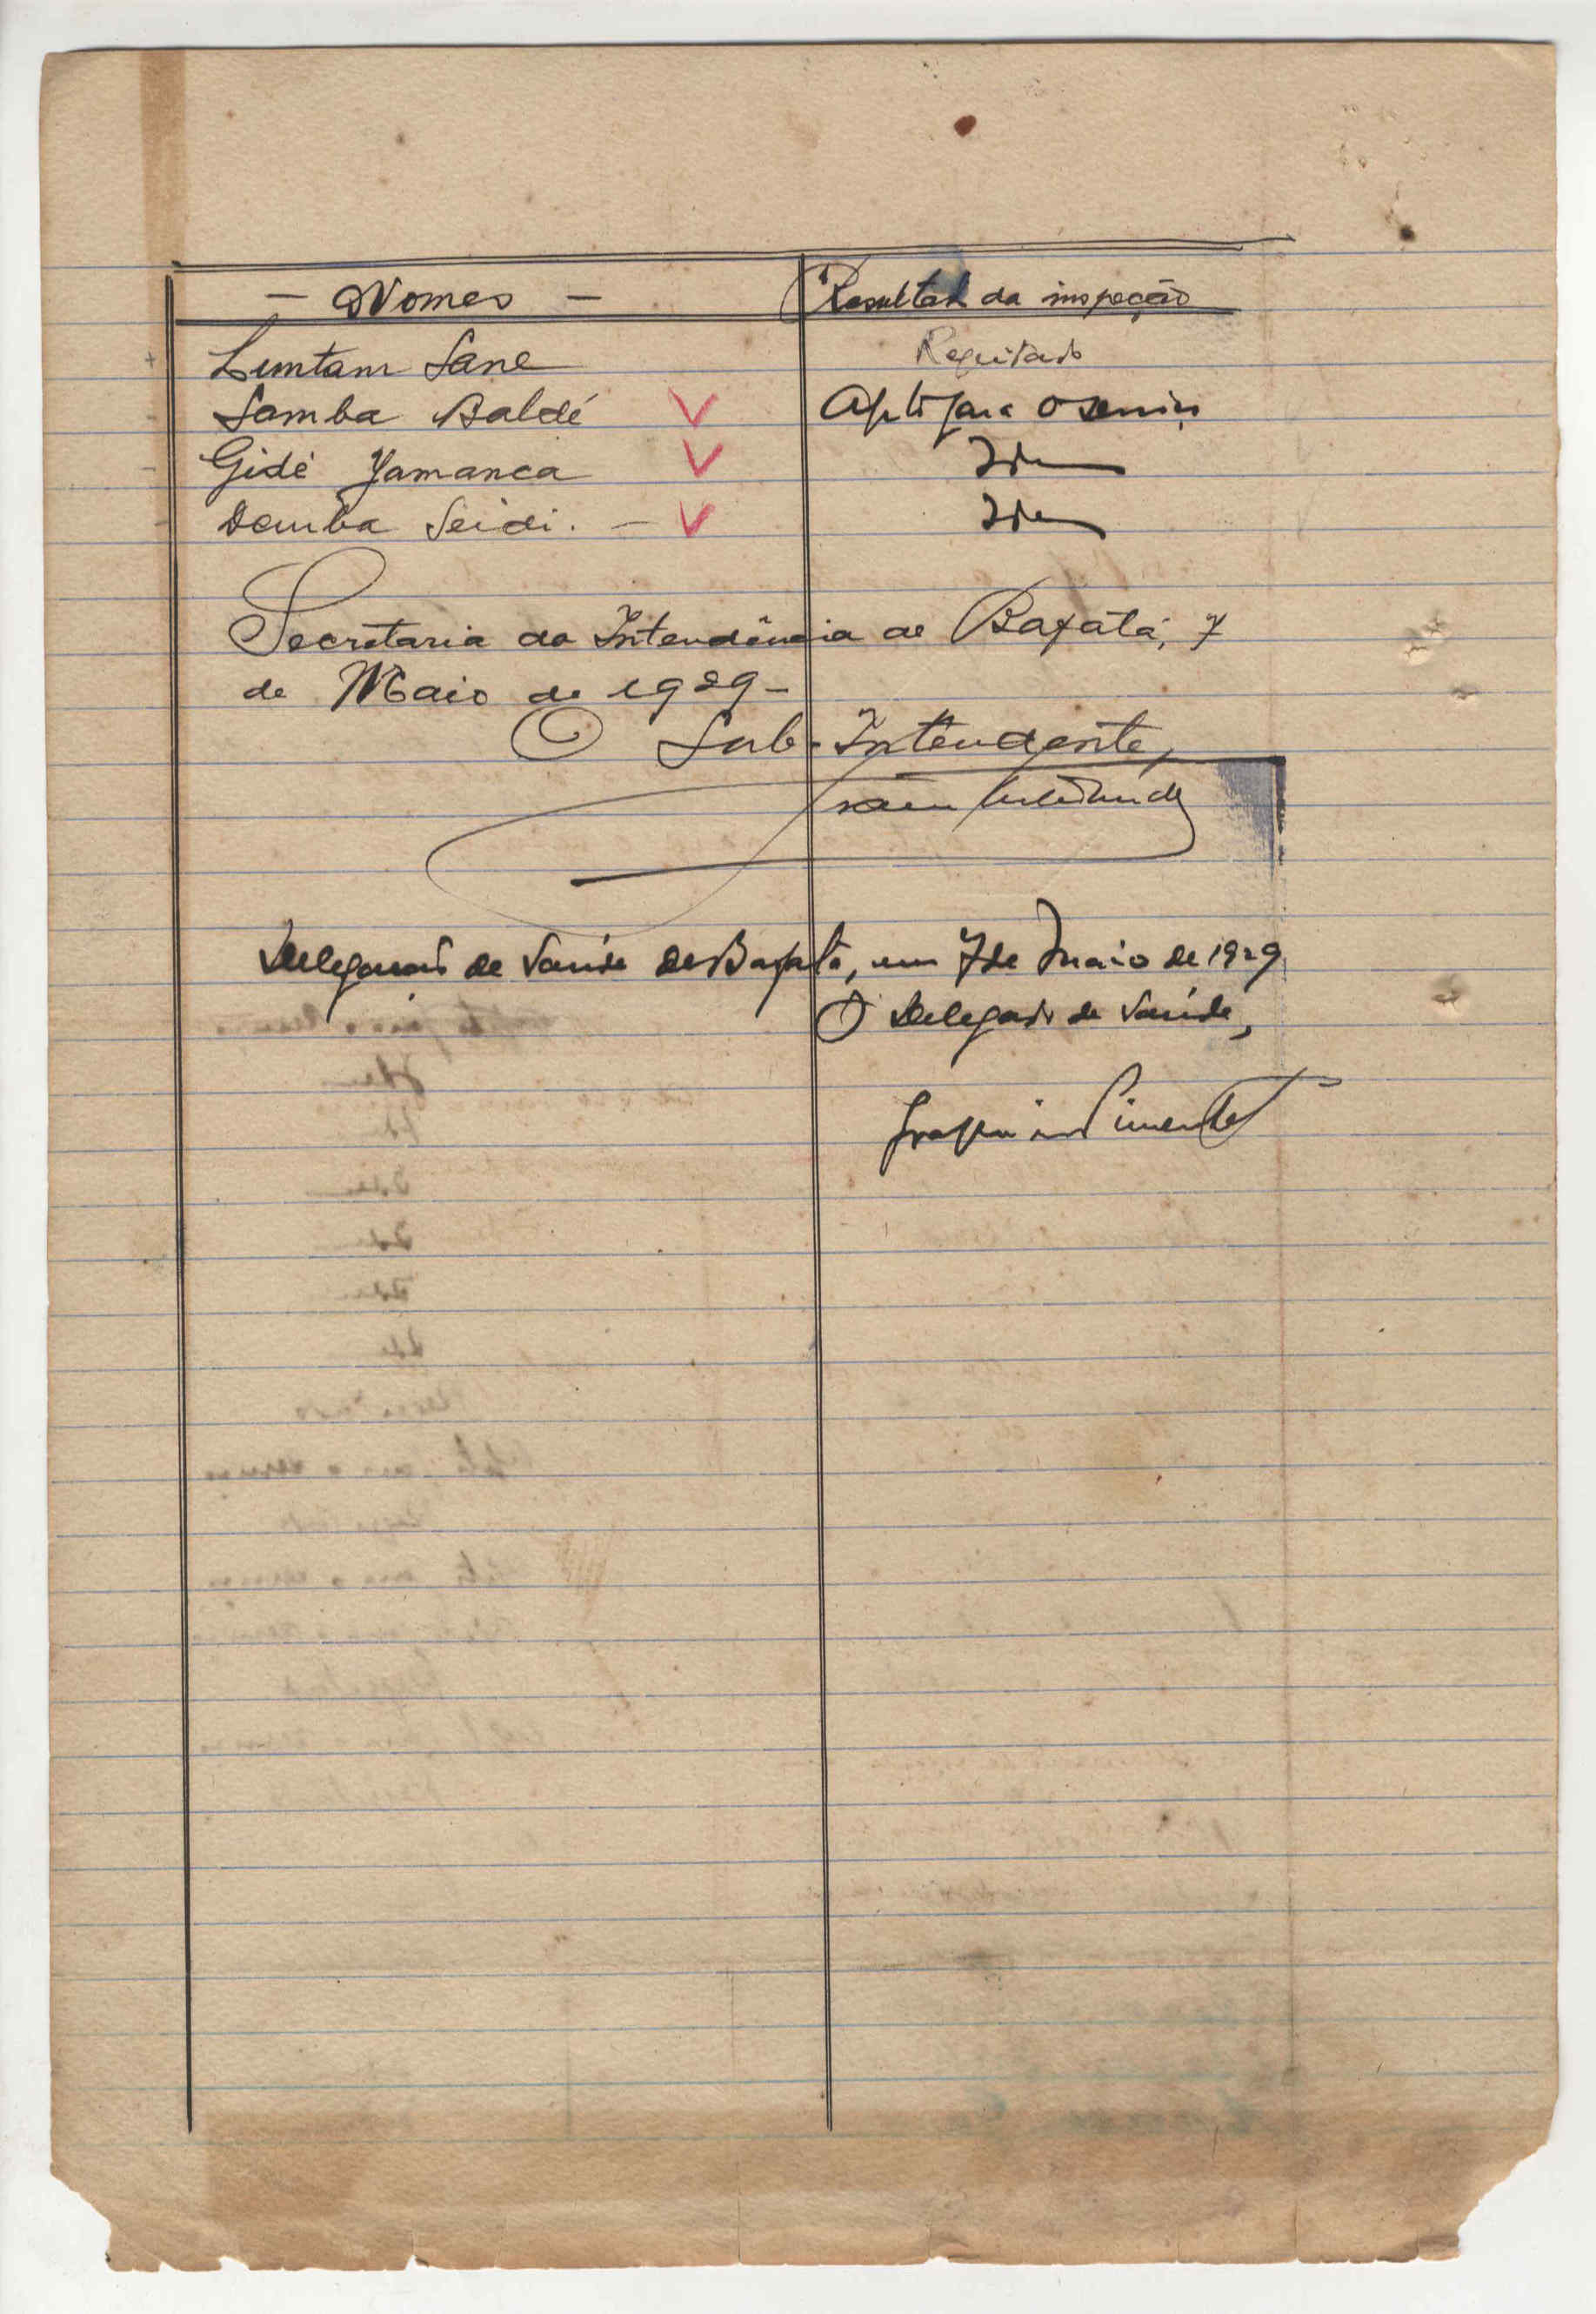 - Nomes - Resultado da inspeção
Lumtam Sane Regeitado
Samba Baldé V Apto para o serviço
Gidé Jamanca V Idem
Demba Seidi. - V Idem
Secretaria da Intendência de Bafatá, 7
de Maio de 1929-
O Sub-Intendente,
Delegação de Saúde de Bafatá, em 7 de Maio de 1929
O Delegado de Saúde,
Pimentel